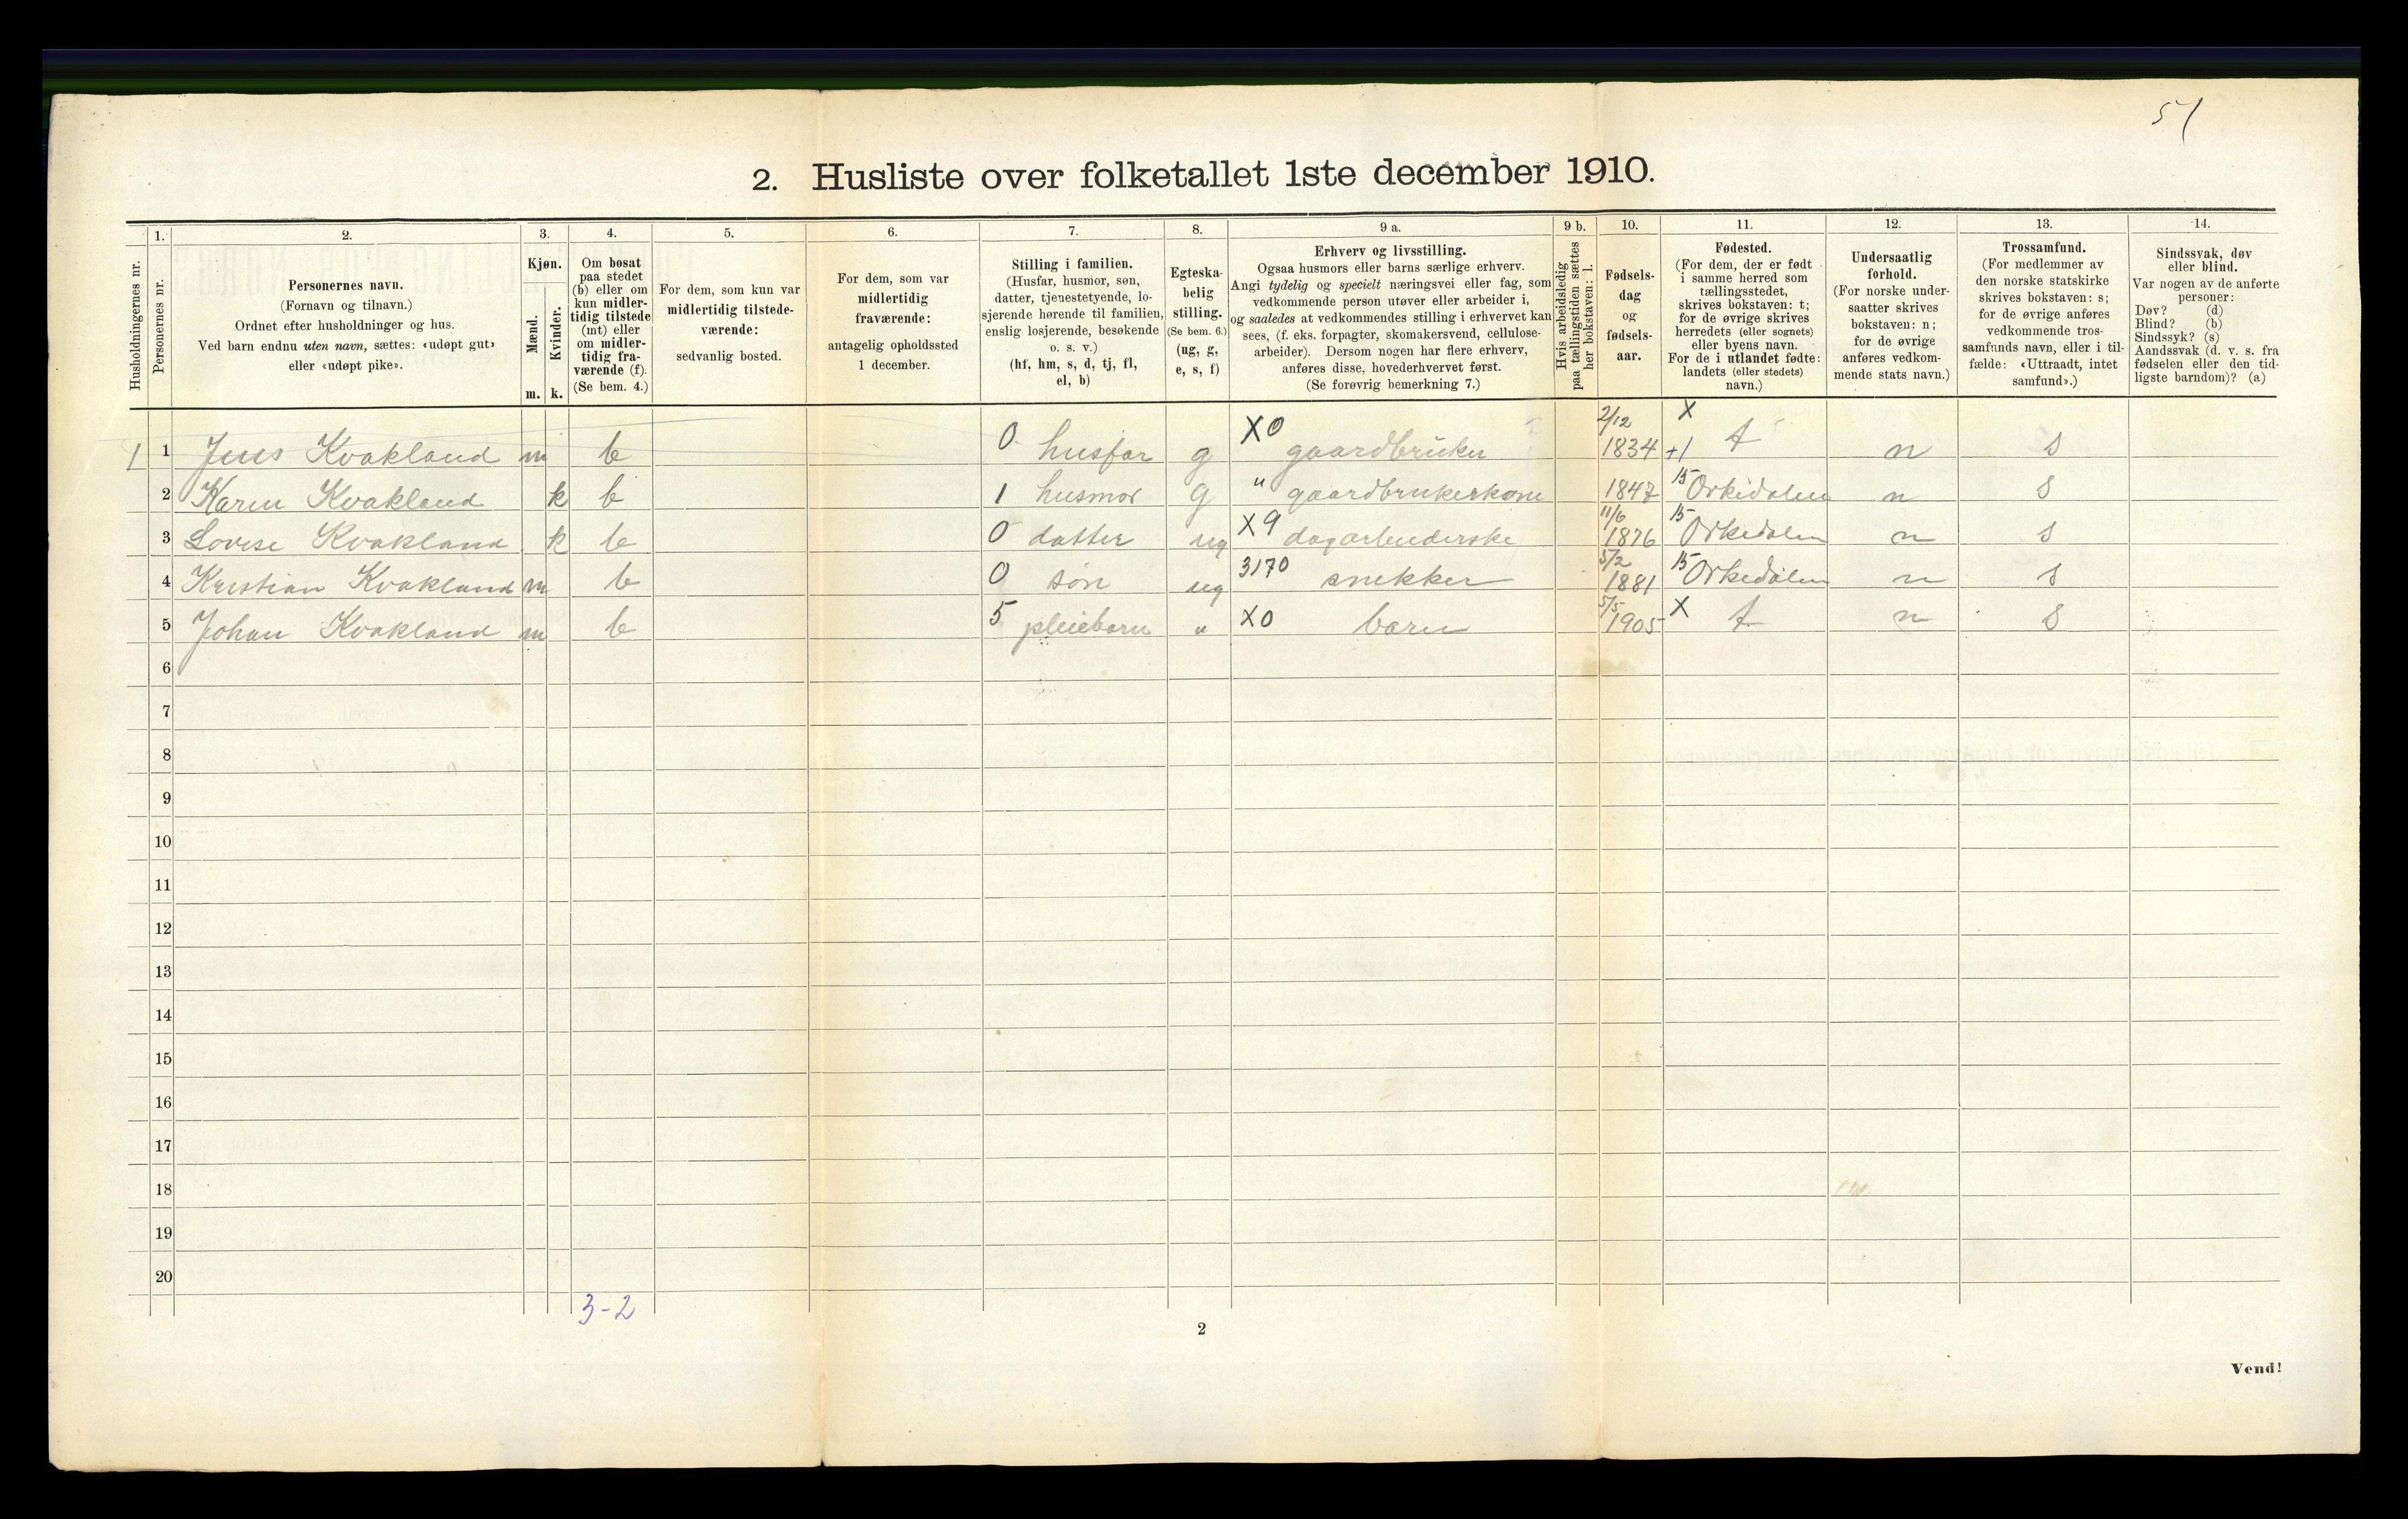 51
2. Husliste over folketallet 1ste december 1910.
Husholdningernes nr.
1.
Personernes nr.
2.
Personernes navn.
(Fornavn og tilnavn.)
Ordnet efter husholdninger og hus.
Ved barn endnu uten navn, sættes: «udøpt gut»
eller «udøpt pike».
3.
Kjøn.
Mænd.
m.
Kvinder.
k.
4.
Om bosat
paa stedet
(b) eller om
kun midler-
tidig tilstede
(mt) eller
om midler-
tidig fra-
værende (f).
(Se bem. 4.)
5.
For dem, som kun var
midlertidig tilstede-
værende:
sedvanlig bosted.
6.
For dem, som var
midlertidig
fraværende:
antagelig opholdssted
1 december.
7.
Stilling i familien.
(Husfar, husmor, søn,
datter, tjenestetyende, lo-
sjerende hørende til familien,
enslig losjerende, besøkende
o. s. v.)
(hf, hm, s, d, tj, fl,
el, b)
8.
Egteska-
belig
stilling.
(Se bem. 6.)
(ug, g,
e, s, f)
9 a.
Erhverv og livsstilling.
Ogsaa husmors eller barns særlige erhverv.
Angi tydelig og specielt næringsvei eller fag, som
vedkommende person utøver eller arbeider i,
og saaledes at vedkommendes stilling i erhvervet kan
sees, (f. eks. forpagter, skomakersvend, cellulose-
arbeider). Dersom nogen har flere erhverv,
anføres disse, hovederhvervet først.
(Se forøvrig bemerkning 7.)
9 b.
Hvis arbeidsledig
paa tællingstiden sættes
her bokstaven: l.
10.
Fødsels-
dag
og
fødsels-
aar.
11.
Fødested.
(For dem, der er født
i samme herred som
tællingsstedet,
skrives bokstaven: t;
for de øvrige skrives
herredets (eller sognets)
eller byens navn.
For de i utlandet fødte:
landets (eller stedets)
navn.)
12.
Undersaatlig
forhold.
(For norske under-
saatter skrives
bokstaven: n;
for de øvrige
anføres vedkom-
mende stats navn.)
13.
Trossamfund.
(For medlemmer av
den norske statskirke
skrives bokstaven: s;
for de øvrige anføres
vedkommende tros-
samfunds navn, eller i til-
fælde: «Uttraadt, intet
samfund».)
14.
Sindssvak, døv
eller blind.
Var nogen av de anførte
personer:
Døv? (d)
Blind? (b)
Sindssyk? (s)
Aandssvak (d. v. s. fra
fødselen eller den tid-
ligste barndom)? (a)
1 1 Jens Kvakland m b 0 husfar g X0 gaardbruker 2/12 1834 +1 X t n s
2 Karen Kvakland k b 1 husmor g " gaardbrukerkone 1847 15 Orkedalen n s
3 Lovise Kvakland k b 0 datter ug X9 dagarbeiderske 11/6 1876 15 Orkedalen n s
4 Kristian Kvakland m b 0 søn ug 3170 snekker 5/2 1881 15 Orkedalen n s
5 Johan Kvakland m b 5 pleiebarn " X0 barn 5/5 1905 X t n s
6
7
8
9
10
11
12
13
14
15
16
17
18
19
20
3-2
2
Vend!